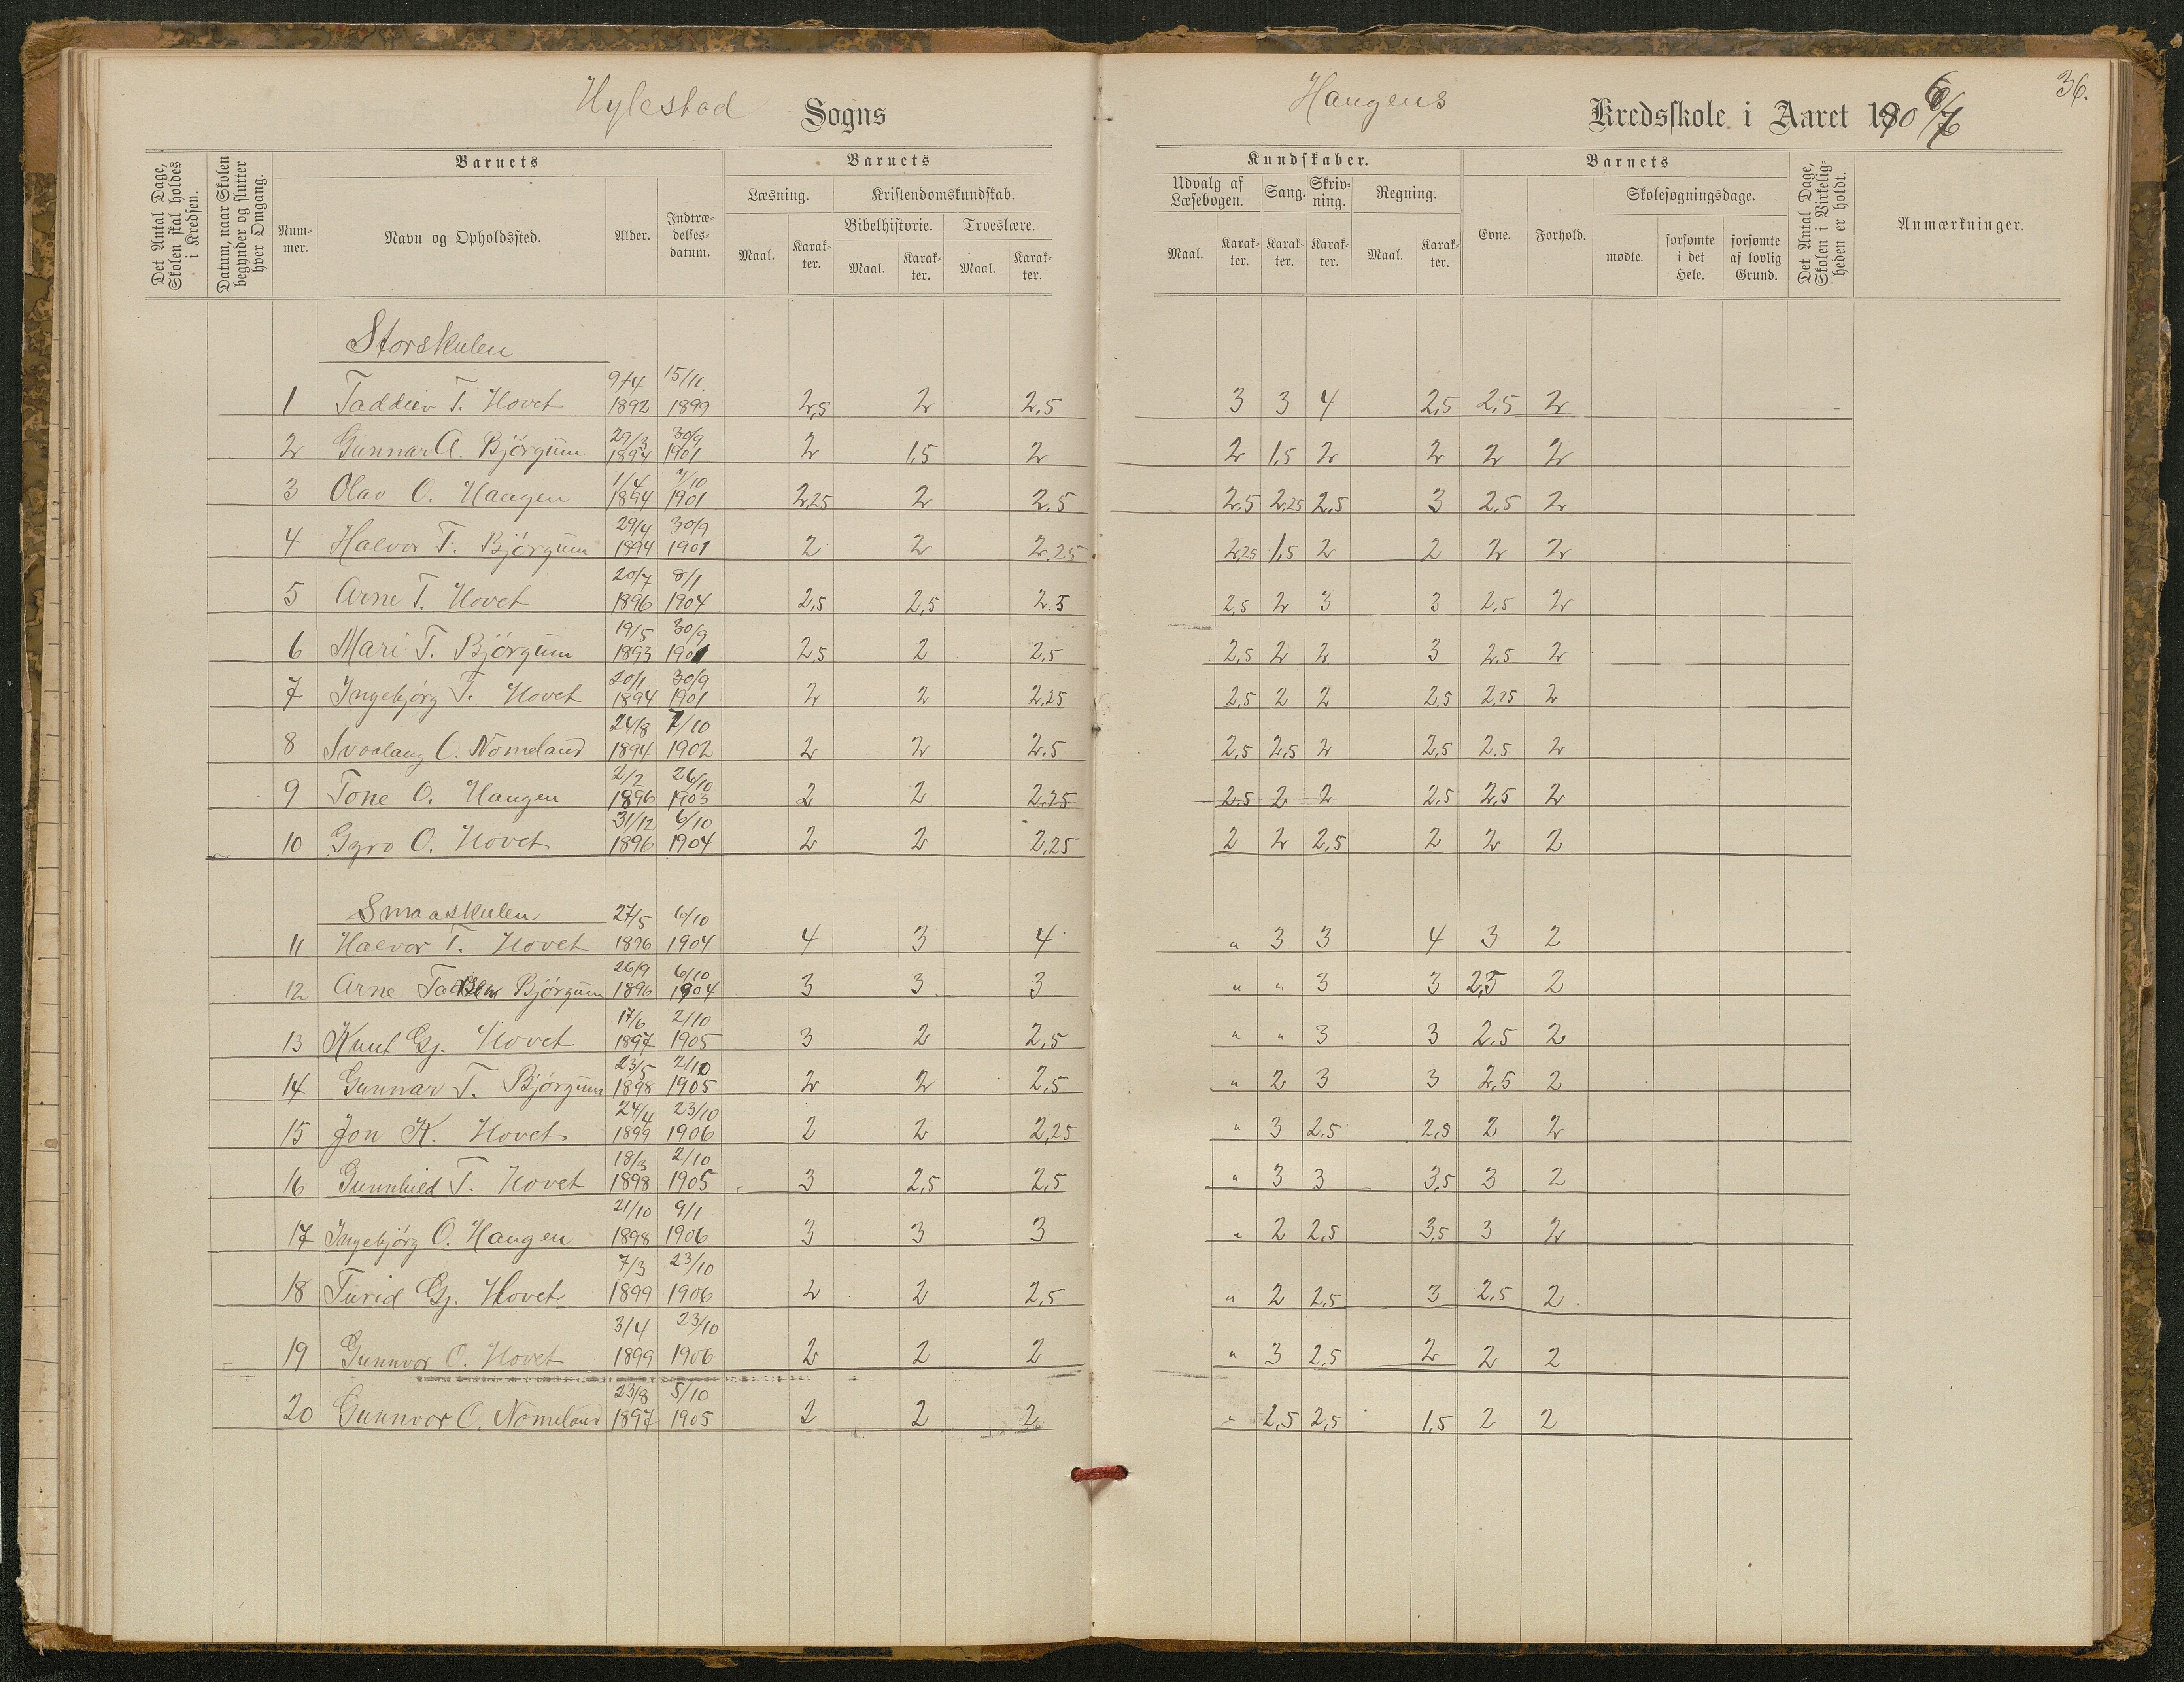 Hylestad Sogns
Haugens Kredsskole i Aaret 1906/7
36.
Det Antal Dage, Skolen skal holdes i Kredsen.
Datum, naar Skolen begynder og slutter hver Omgang.
Barnets
Num-mer.
Navn og Opholdssted.
Alder.
Indtræ-delses-datum.
Barnets
Læsning.
Maal. Karak-ter.
Kristendomskundskab.
Bibelhistorie. Troeslære.
Maal. Karak-ter. Maal. Karak-ter.
Kundskaber.
Udvalg af Læsebogen. Sang. Skriv-ning. Regning.
Maal. Karak-ter. Karak-ter. Karak-ter. Maal. Karak-ter.
Barnets
Evne. Forhold.
Skolesøgningsdage.
mødte. forsømte i det Hele. forsømte af lovlig Grund.
Det Antal Dage, Skolen i Virkelig-heden er holdt.
Anmærkninger.
Storskulen
9/4 15/11
1 Taddeiv T. Hovet 1892 1899 2,5 2 2,5 3 3 4 2,5 2,5 2
29/3 30/9
2 Gunnar A. Bjørgum 1894 1901 2 1,5 2 2 1,5 2 2 2 2
1/4 7/10
3 Olav O. Haugen 1894 1901 2,25 2 2,5 2,5 2,25 2,5 3 2,5 2
29/4 30/9
4 Halvor T. Bjørgum 1894 1901 2 2 2,25 2,25 1,5 2 2 2 2
20/7 8/1
5 Arne T. Hovet 1896 1904 2,5 2,5 2.5 2,5 2 3 3 2,5 2
19/5 30/9
6 Mari T. Bjørgum 1893 1901 2,5 2 2,5 2,5 2 2 3 2,5 2
20/1 30/9
7 Ingebjørg T. Hovet 1894 1901 2 2 2,25 2,5 2 2 2,5 2,25 2
24/8 7/10
8 Svaalaug O. Nomeland 1894 1902 2 2 2.5 2,5 2,5 2 2,5 2.5 2
2/2 26/10
9 Tone O. Haugen 1896 1903 2 2 2,25 2,5 2 2 2,5 2,5 2
31/12 6/10
10 Gyro O. Hovet 1896 1904 2 2 2,25 2 2 2,5 2 2 2
Smaaskulen 27/5 6/10
11 Halvor T. Hovet 1896 1904 4 3 4 " 3 3 4 3 2
26/9 6/10
12 Arne Bjørgum 1896 1904 3 3 3 " " 3 3 2,5 2
17/6 2/10
13 Knut Gj. Hovet 1897 1905 3 2 2,5 " " 3 3 2,5 2
23/5 2/10
14 Gunnar T. Bjørgum 1898 1905 2 2 2,5 " 2 3 3 2,5 2
24/4 23/10
15 Jon K. Hovet 1899 1906 2 2 2,25 " 3 2,5 2,5 2 2
18/3 2/10
16 Gunnhild T. Hovet 1898 1905 3 2,5 2,5 " 3 3 3,5 3 2
21/10 9/1
17 Ingebjørg O. Haugen 1898 1906 3 3 3 " 2 2,5 3,5 3 2
7/3 23/10
18 Turid Gj. Hovet 1899 1906 2 2 2,5 " 2 2,5 3 2,5 2
3/4 23/10
19 Gunnvor O. Hovet 1899 1906 2 2 2 " 3 2,5 2 2 2
23/8 5/10
20 Gunnvor O. Nomeland 1897 1905 2 2 2 " 2,5 2,5 1,5 2 2